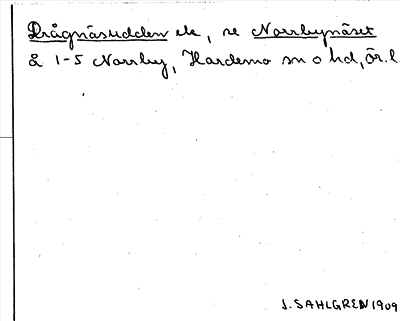 Drågnäsudden ek, se Norrbynäset
å 1-5 Norrby, Hardemo sn o hd, Ör.l.
J. SAHLGREN 1909